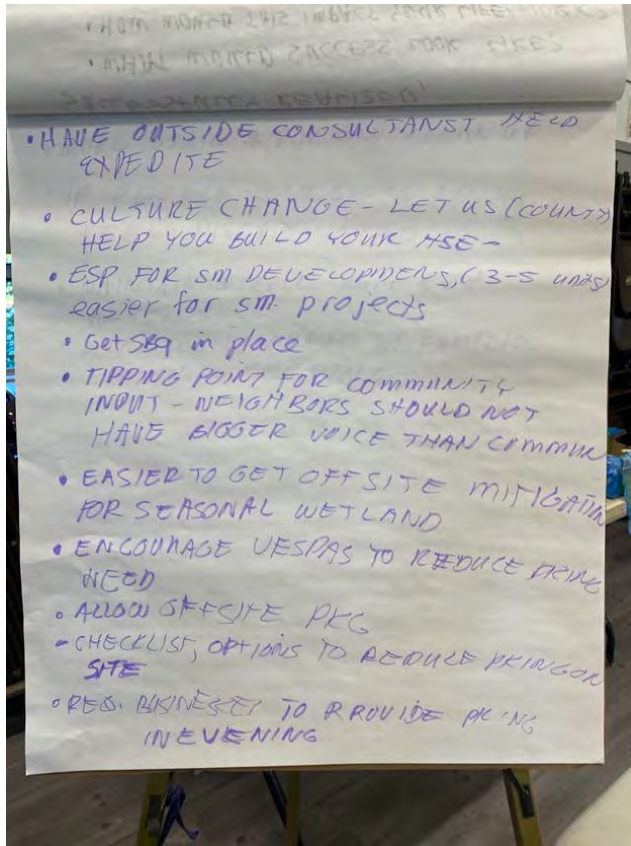 • HAVE OUTSIDE CONSULTANST HELD
EXPEDITE
• CULTURE CHANGE - LET US (COUNTY)
HELP YOU BUILD YOUR HSE -
• ESP FOR SM DEVELOPMENS, (3-5 UNITS)
easier for sm. projects
• Get SB9 in place
• TIPPING POINT FOR COMMUNITY
INPUT - NEIGHBORS SHOULD NOT
HAVE BIGGER VOICE THAN COMMUN
• EASIER TO GET OFFSITE MITIGATION
FOR SEASONAL WETLAND
• ENCOURAGE VESPAS TO REDUCE PKING
NEED
• ALLOW OFFSITE PKG
- CHECKLIST, OPTIONS TO REDUCE PKING ON
SITE
• REQ. BUSINESSES TO PROVIDE PKING
IN EVENING